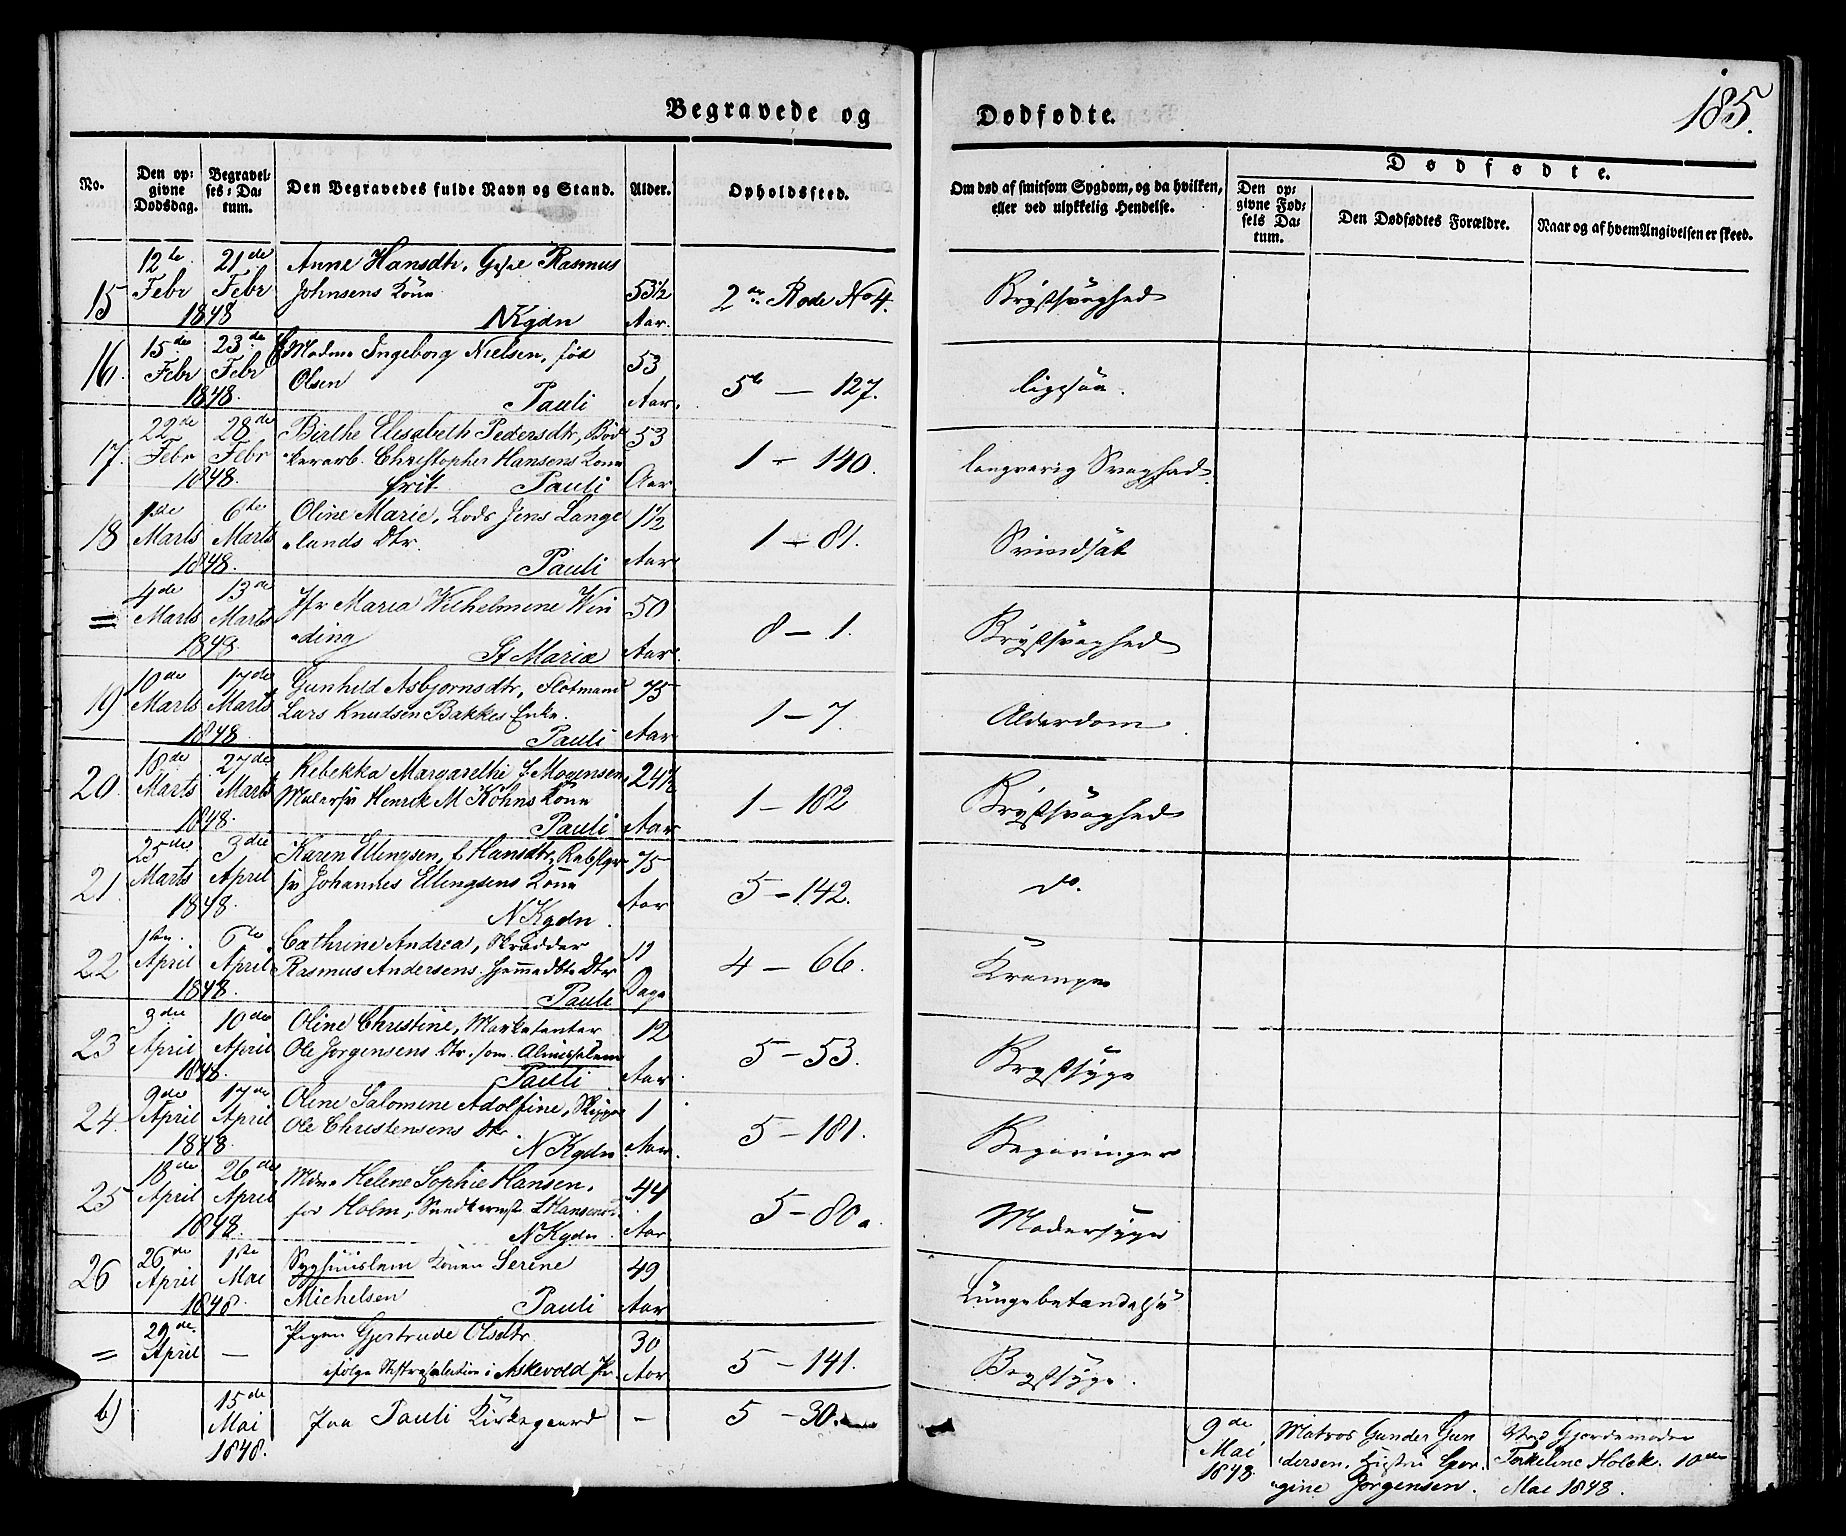 185.
Begravede og Dødfødte.
No.
Den opgivne Dødsdag.
Begravelses-Datum.
Den Begravedes fulde Navn og Stand.
Alder.
Opholdssted.
Om død af smitsom Sygdom, og da hvilken, eller ved ulykkelig Hendelse.
Dødfødte.
Den opgivne Fødsels Datum.
Den Dødfødtes Forældre.
Naar og af hvem Angivelsen er skeed.
15 12te Febr 21de Febr 1848
Anne Hansdtr, Rasmus
Johnsens Kone
NKgdn
53½ Aar.
2de Rode No 4.
Brystsvaghed
16. 15de Febr 23de Febr 1848.
Madme Ingeborg Nielsen, fød
Olsen
Pauli
53 Aar.
5te — 127.
17. 22de Febr 28de Febr 1848.
Birthe Elisabeth Pedersdtr, Bød
kerarb. Christopher Hansens Kone
frit. Pauli
53 Aar
1 — 140.
langvarig Svaghed
18 1de Marts 6te Marts 1848.
Oline Marie, Lods Jens Lange
lands Dtr.
Pauli
1½ Aar
1 — 81.
Svindsot
= 4de Marts 13de Marts 1848
Jfr Maria Wilhelmine Win
ding
St Maria
50 Aar.
8 — 1.
Brystsvaghed
19 10de Marts 17de Marts 1848.
Gunhild Asbjornsdtr, Flotmand
Lars Knudsen Bakkes Enke.
Pauli
75 Aar
1 — 7.
Alderdom
20. 18de Marts 27de Marts 1848.
Rebekka Margarethe f. Mogensen
Malersv Henrik M Köhns Kone
Pauli
24½ Aar
1 — 182
Brystsvaghed
21. 25de Marts 3die April 1848.
Karen Ellingsen, f. Hansdtr, Rebslger
sv Johannes Ellingsens Kone
NKgdn.
75 Aar
5 — 142.
do.
22 1ste April 6te April 1848.
Cathrine Andrea, Skrædder
Rasmus Andersens hjemmedbte Dtr
Pauli
Dage
4 — 66.
Krampe
23 3die April 10de April 1848.
Oline Christine, Marketenter
Ole Jorgensens Dtr. som Almisselem
Pauli
12 Aar.
5 — 53.
Brystsyge
24. 9de April 17de April 1848.
Oline Salomine Adolfine, Skipper
Ole Christensens Dtr.
NKgdn
1 Aar.
5 — 181.
25 18de April 26de April 1848.
Mdme Helene Sophie Hansen,
fød Holm, Hansens
NKgdn.
44 Aar.
5 — 80 a
Modersyge
26 26de April 1ste Mai 1848.
Syghuuslem Konen Serine
Michelsen
Pauli
49 Aar
Lungebetændelse
= 29de April —
Pigen Gjertrude Olsdtr.
ifølge i Askevold
30 Aar
5 — 141.
Brystsyge.
6) 15de Mai 1848.
Paa Pauli Kirkegaard
—
5 — 30.
9de Mai 1848.
Matros Gunder Gun
dersen, Hustru
gine Jorgensen.
Ved Gjordemoder
Torkeline Holck. 10de
Mai 1848.